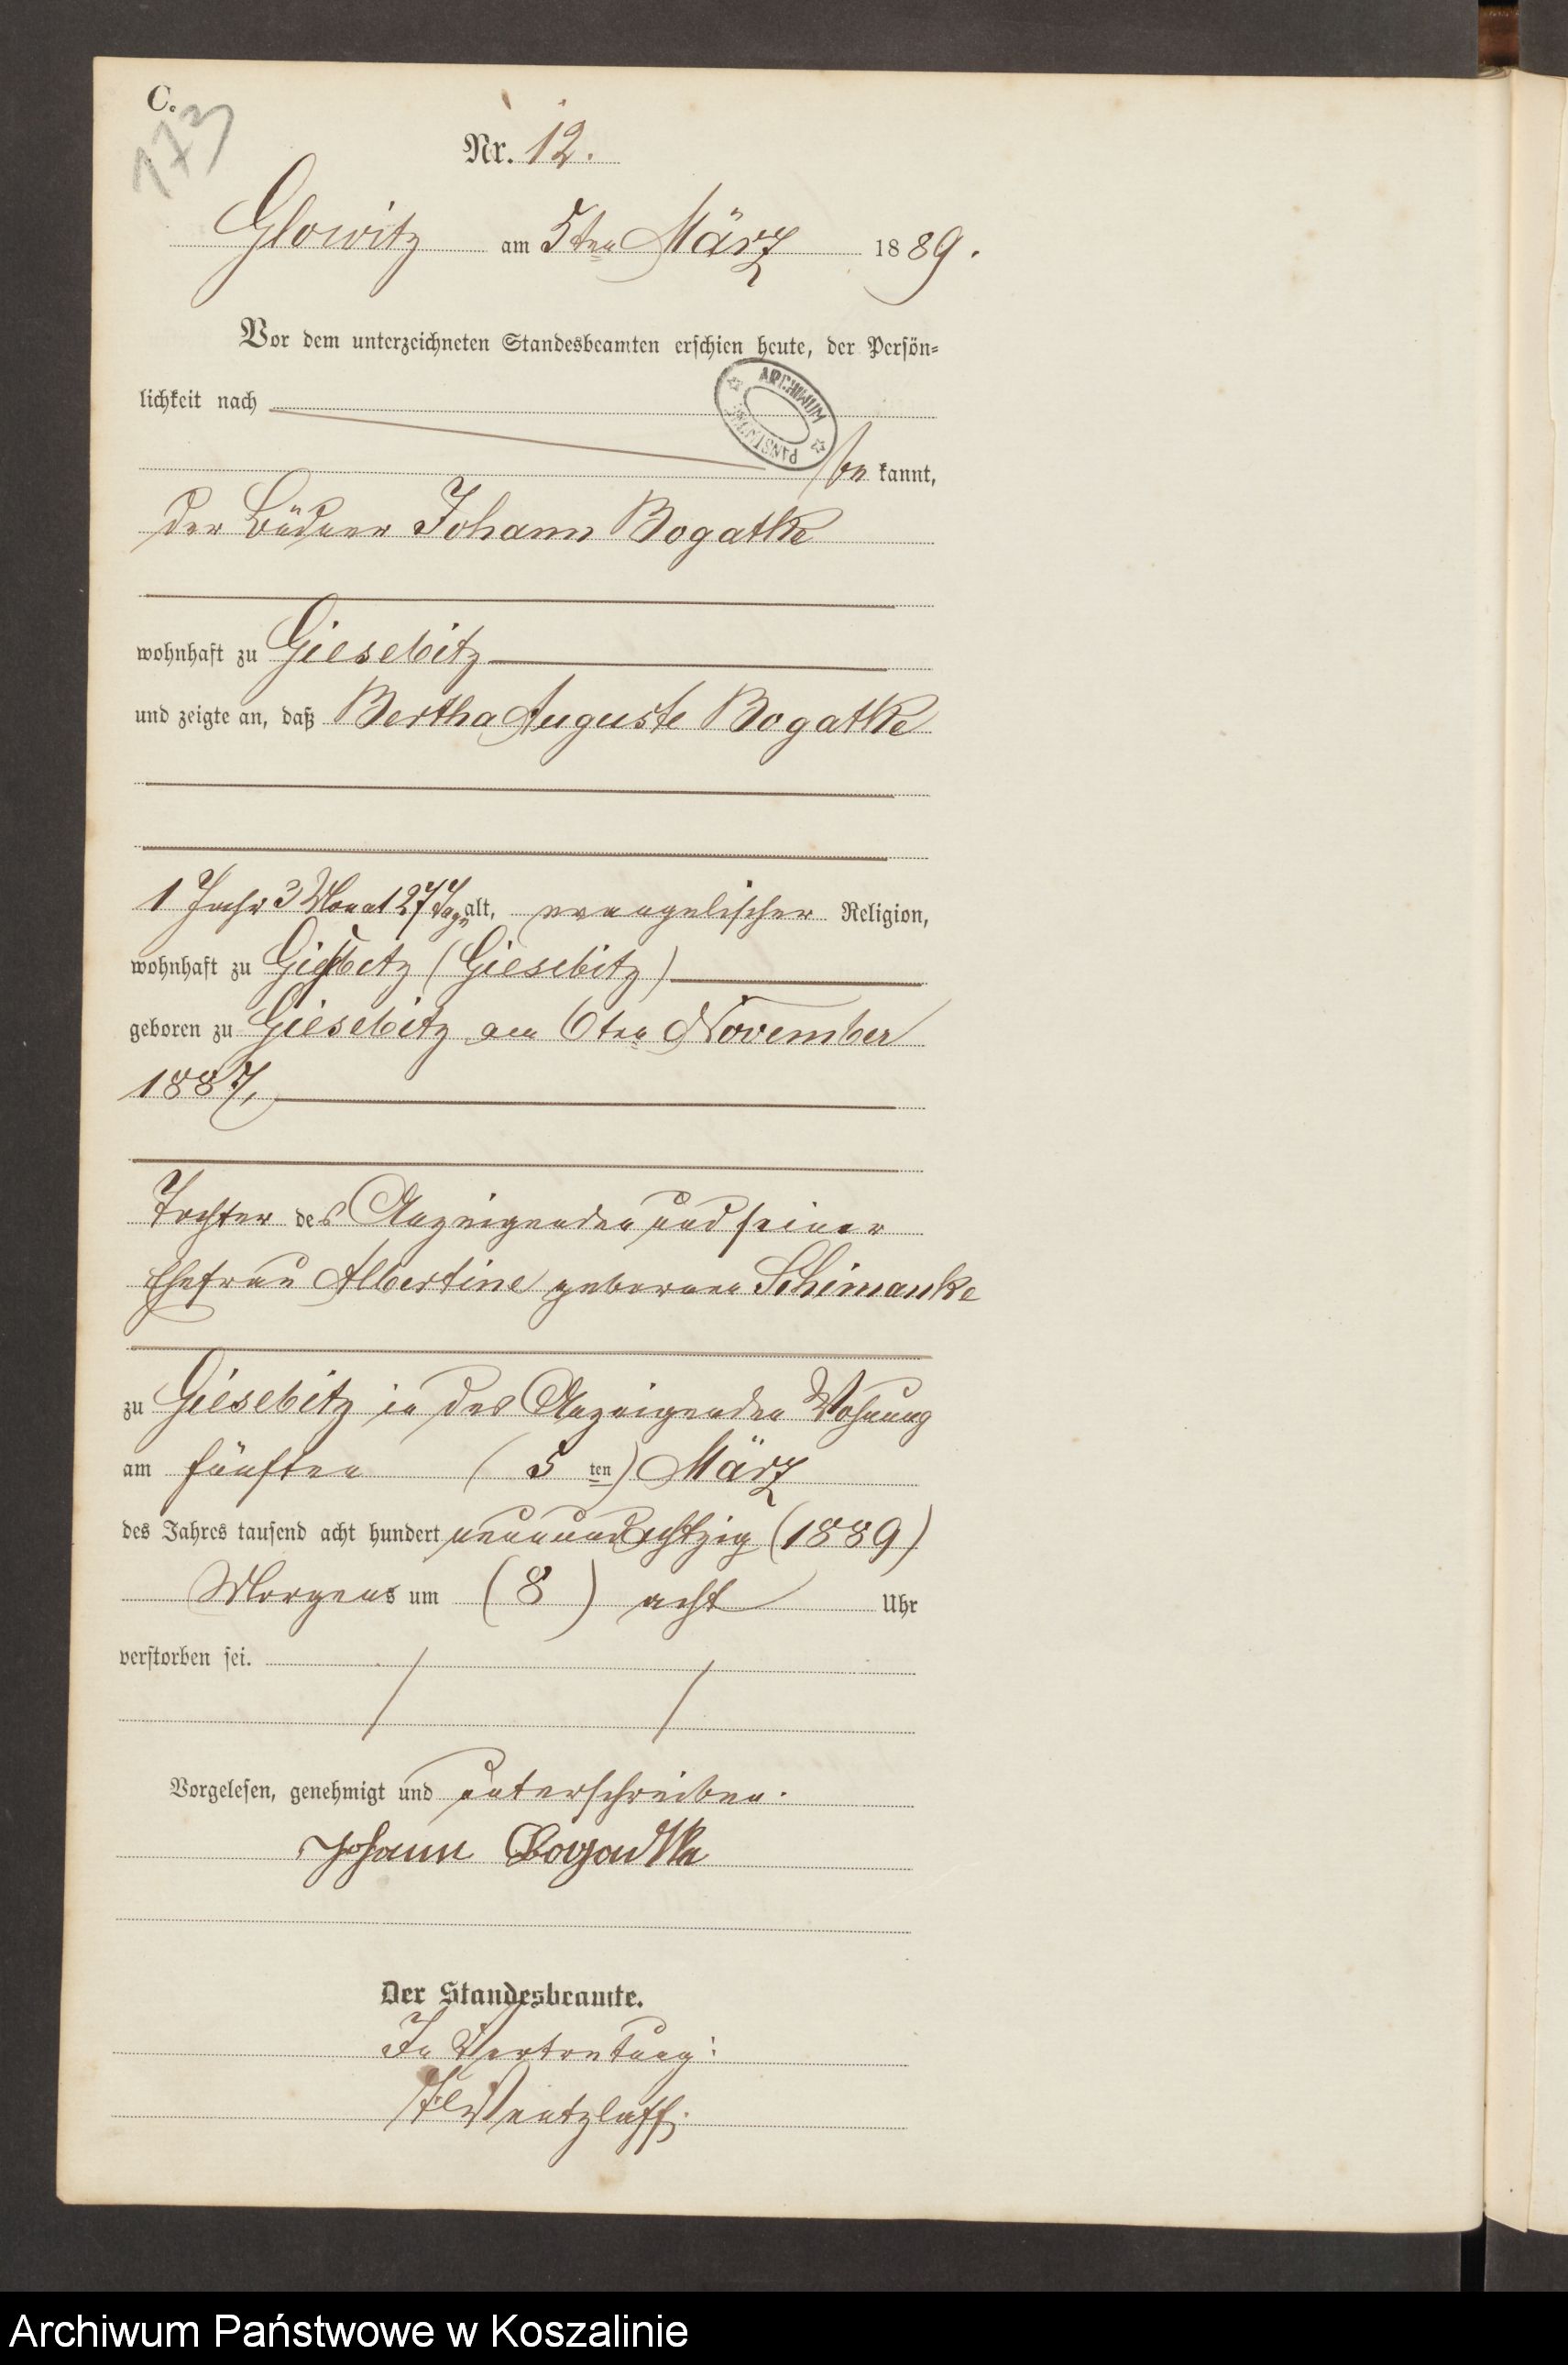 C.
173
Nr. 12.
Glowitz am 5ten März 1889.
Vor dem unterzeichneten Standesbeamten erschien heute, der Persön-
lichkeit nach
ARCHIWUM
PAŃSTWOWE
be kannt,
der Büdner Johann Bogatke
wohnhaft zu Giesebitz
und zeigte an, daß Bertha Auguste Bogatke
1 Jahr 3 Monat 27 Tage alt, evangelischer Religion,
wohnhaft zu (Giesebitz)
geboren zu Giesebitz am 6ten November
1887,
Tochter des Anzeigenden und seiner
Ehefrau Albertine geborenen Schimanke
zu Giesebitz in des Anzeigenden Wohnung
am fünften (5 ten) März
des Jahres tausend acht hundert neunundachtzig (1889)
Morgens um (8) acht Uhr
verstorben sei.
Vorgelesen, genehmigt und unterschrieben.
Johann Bogadtke
Der Standesbeamte.
In Vertretung:
Wentzlaff.
Archiwum Państwowe w Koszalinie